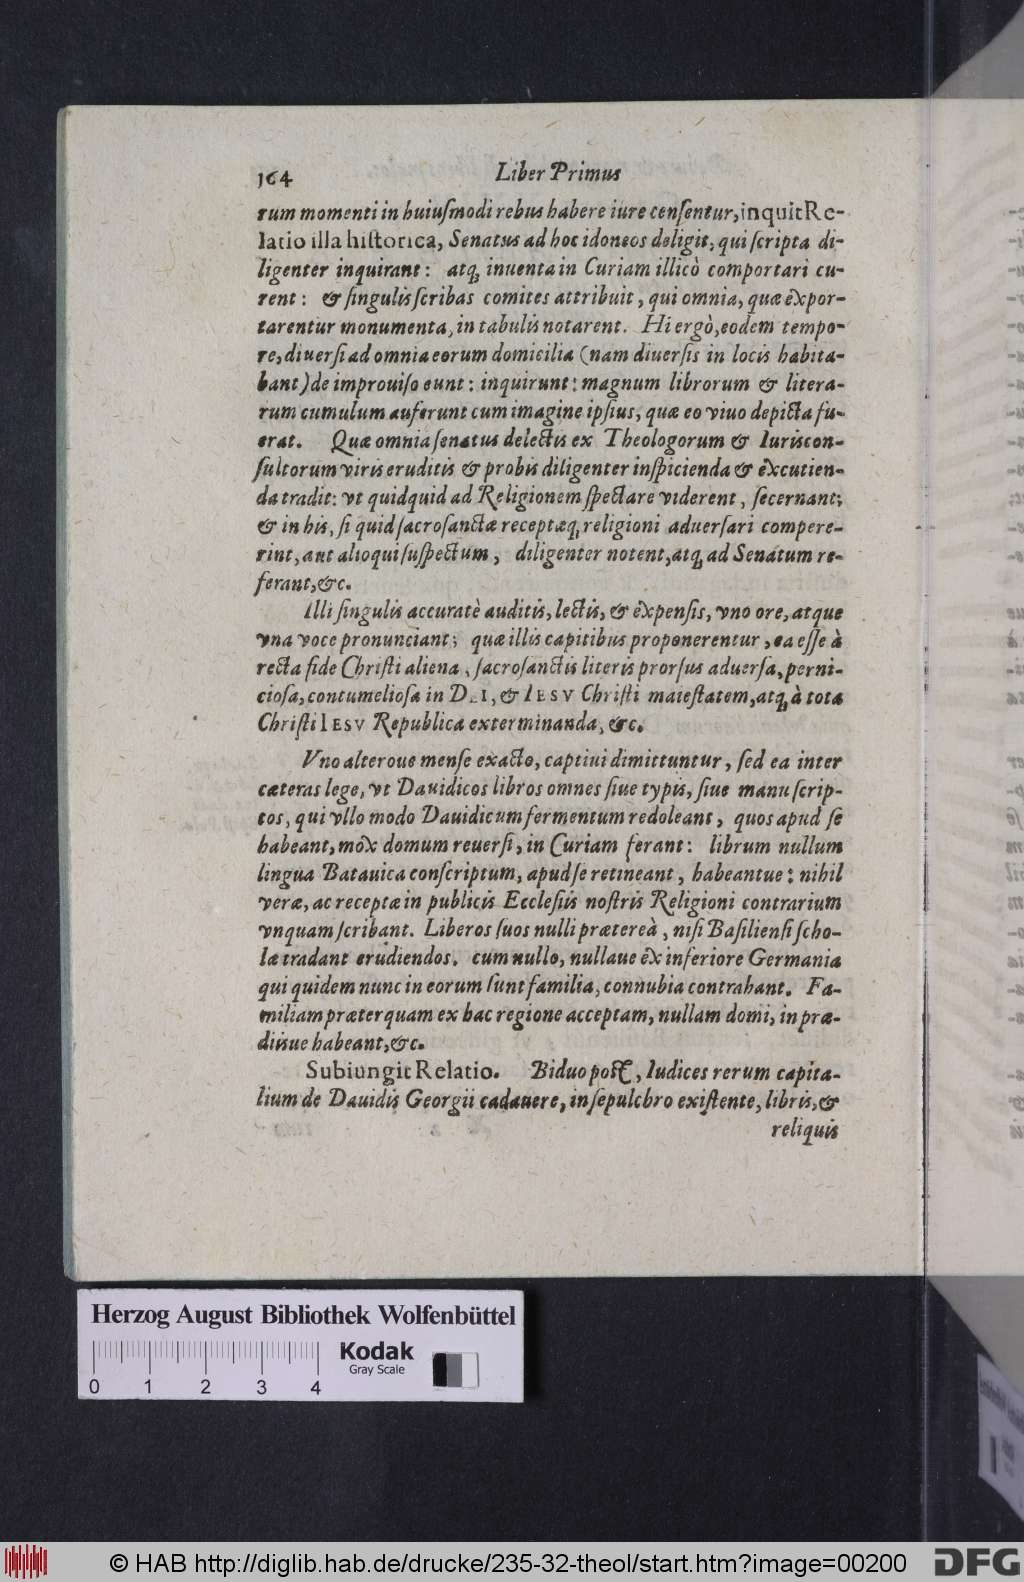 164 Liber Primus
rum momenti in huiuſmodi rebus habere iure cenſentur, inquit Re-
latio illa hiſtorica, Senatus ad hoc idoneos deligit, qui ſcripta di-
ligenter inquirant: atq́; inuenta in Curiam illicò comportari cu-
rent: & ſingulis ſcribas comites attribuit, qui omnia, quæ expor-
tarentur monumenta, in tabulis notarent. Hi ergò, eodem tempo-
re, diuerſi ad omnia eorum domicilia (nam diuerſis in locis habita-
bant) de improuiſo eunt: inquirunt: magnum librorum & litera-
rum cumulum auferunt cum imagine ipſius, quæ eo viuo depicta fu-
erat. Quæ omnia ſenatus delectis ex Theologorum & Iuriscon-
ſultorum viris eruditis & probis diligenter inſpicienda & excutien-
da tradit: vt quidquid ad Religionem ſpectare viderent, ſecernant;
& in his, ſi quid ſacroſanctæ receptæq́; religioni aduerſari compere-
rint, aut alioqui ſuſpectum, diligenter notent, atq́; ad Senatum re-
ferant, &c.
Illi ſingulis accuratè auditis, lectis, & expenſis, vno ore, atque
vna voce pronunciant; quæ illis capitibus proponerentur, ea eſſe à
recta fide Chriſti aliena, ſacroſanctis literis prorſus aduerſa, perni-
cioſa, contumelioſa in DEI, & IESV Chriſti maieſtatem, atq́; à tota
Chriſti IESV Republica exterminanda, &c.
Vno alteroue menſe exacto, captiui dimittuntur, ſed ea inter
cæteras lege, vt Dauidicos libros omnes ſiue typis, ſiue manu ſcrip-
tos, qui vllo modo Dauidicum fermentum redoleant, quos apud ſe
habeant, mox domum reuerſi, in Curiam ferant: librum nullum
lingua Batauica conſcriptum, apud ſe retineant, habeantue: nihil
veræ, ac receptæ in publicis Eccleſiis noſtris Religioni contrarium
vnquam ſcribant. Liberos ſuos nulli prætereà, niſi Baſilienſi ſcho-
læ tradant erudiendos. cum nullo, nullaue ex inferiore Germania
qui quidem nunc in eorum ſunt familia, connubia contrahant. Fa-
miliam præterquam ex hac regione acceptam, nullam domi, in præ-
diisue habeant, &c.
Subiungit Relatio. Biduo poſt, Iudices rerum capita-
lium de Dauidis Georgii cadauere, in ſepulchro exiſtente, libris, &
reliquis
Herzog August Bibliothek Wolfenbüttel
Kodak
Gray Scale
0 1 2 3 4
© HAB http://diglib.hab.de/drucke/235-32-theol/start.htm?image=00200
DFG